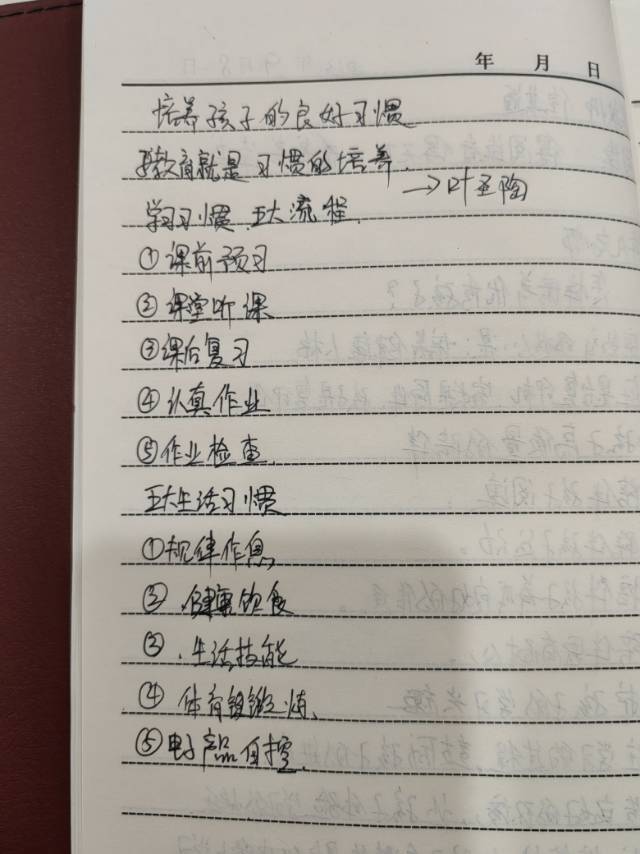 年 月 日
培养孩子的良好习惯
教育就是习惯的培养. →叶圣陶
学习习惯 五大流程.
①课前预习
②课堂听课
③课后复习
④认真作业
⑤作业检查.
五大生活习惯
①规律作息
②.健康饮食
③.生活技能
④体育锻炼.
⑤电子产品自控.